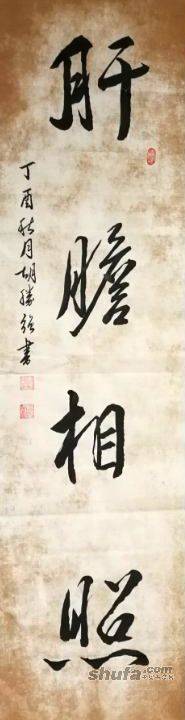 肝膽相照
丁酉秋月胡勝銘書
shufa.com